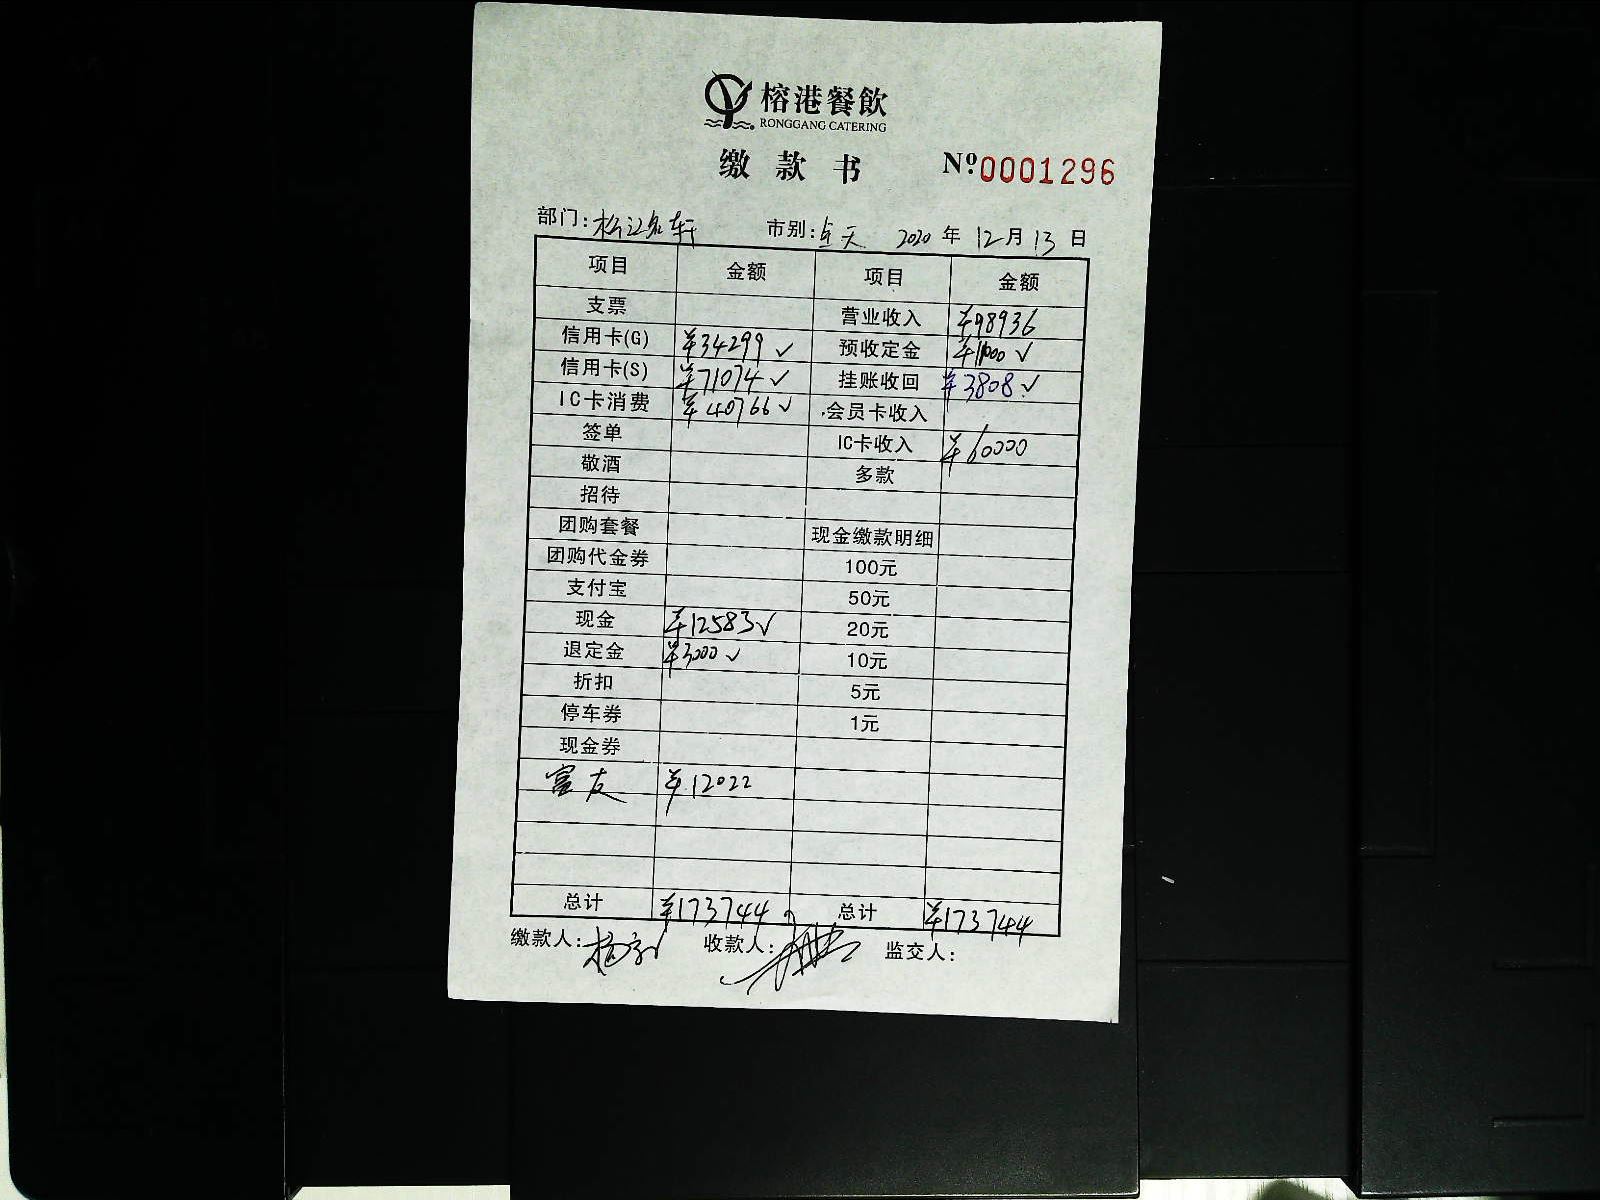 榕港餐飲
RONGGANG CATERING
缴款书 Nº 0001296
部门: 松江名轩 市别: 全天 2020 年 12 月 13 日
项目 金额 项目 金额
支票 营业收入 ¥98936
信用卡(G) ¥34299 ✓ 预收定金 ¥11000 ✓
信用卡(S) ¥71074 ✓ 挂账收回 ¥3808 ✓
IC卡消费 ¥40766 ✓ 会员卡收入
签单 IC卡收入 ¥60000
敬酒 多款
招待
团购套餐 现金缴款明细
团购代金券 100元
支付宝 50元
现金 ¥12583 ✓ 20元
退定金 ¥3000 ✓ 10元
折扣 5元
停车券 1元
现金券
富友 ¥12022
总计 ¥173744 总计 ¥173744
缴款人: 收款人: 监交人: